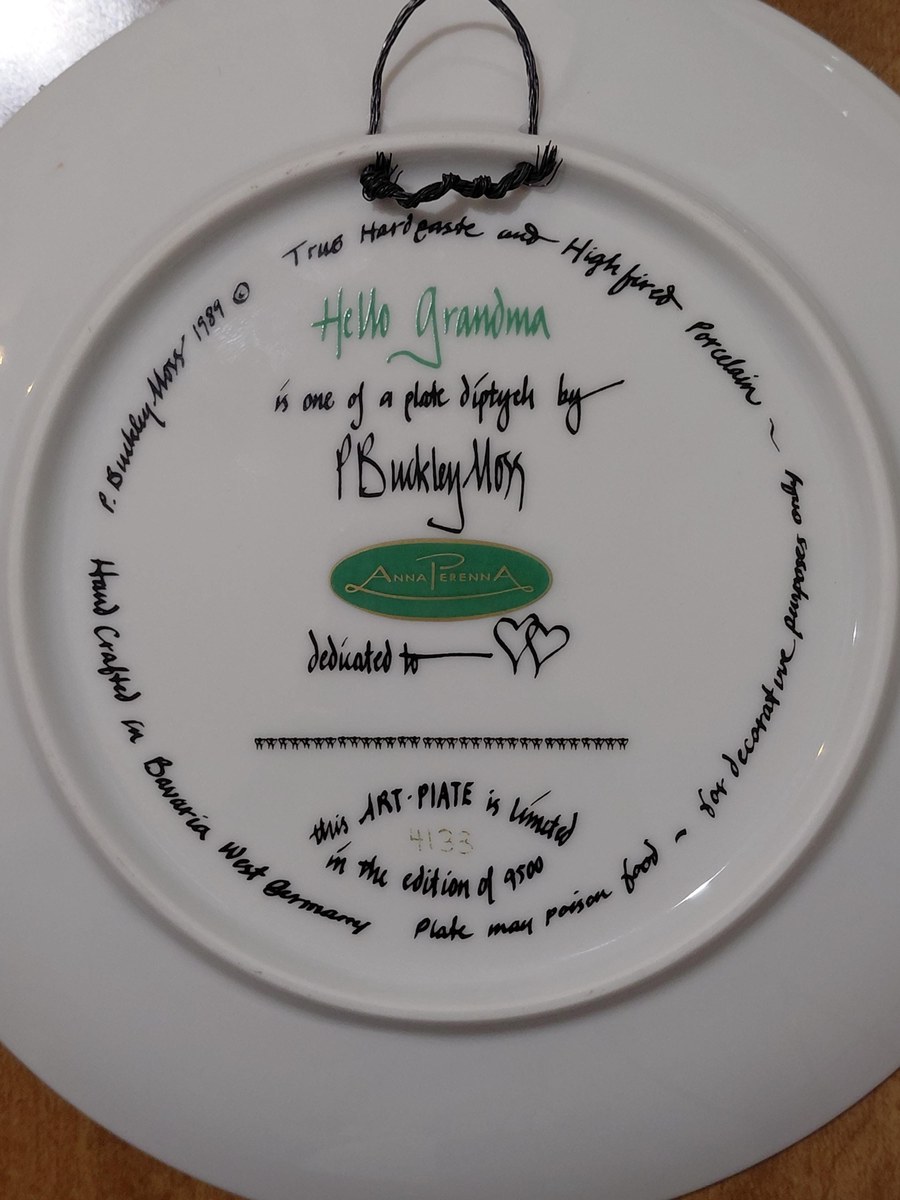 True Hardpaste and High fired Porcelain ~
for decorative purposes only
Plate may poison food ~
Hand Crafted in Bavaria West Germany
P. Buckley Moss 1989 ©
Hello Grandma
is one of a plate diptych by
P Buckley Moss
ANNA PERENNA
dedicated to
this ART-PLATE is limited
4133
in the edition of 9500